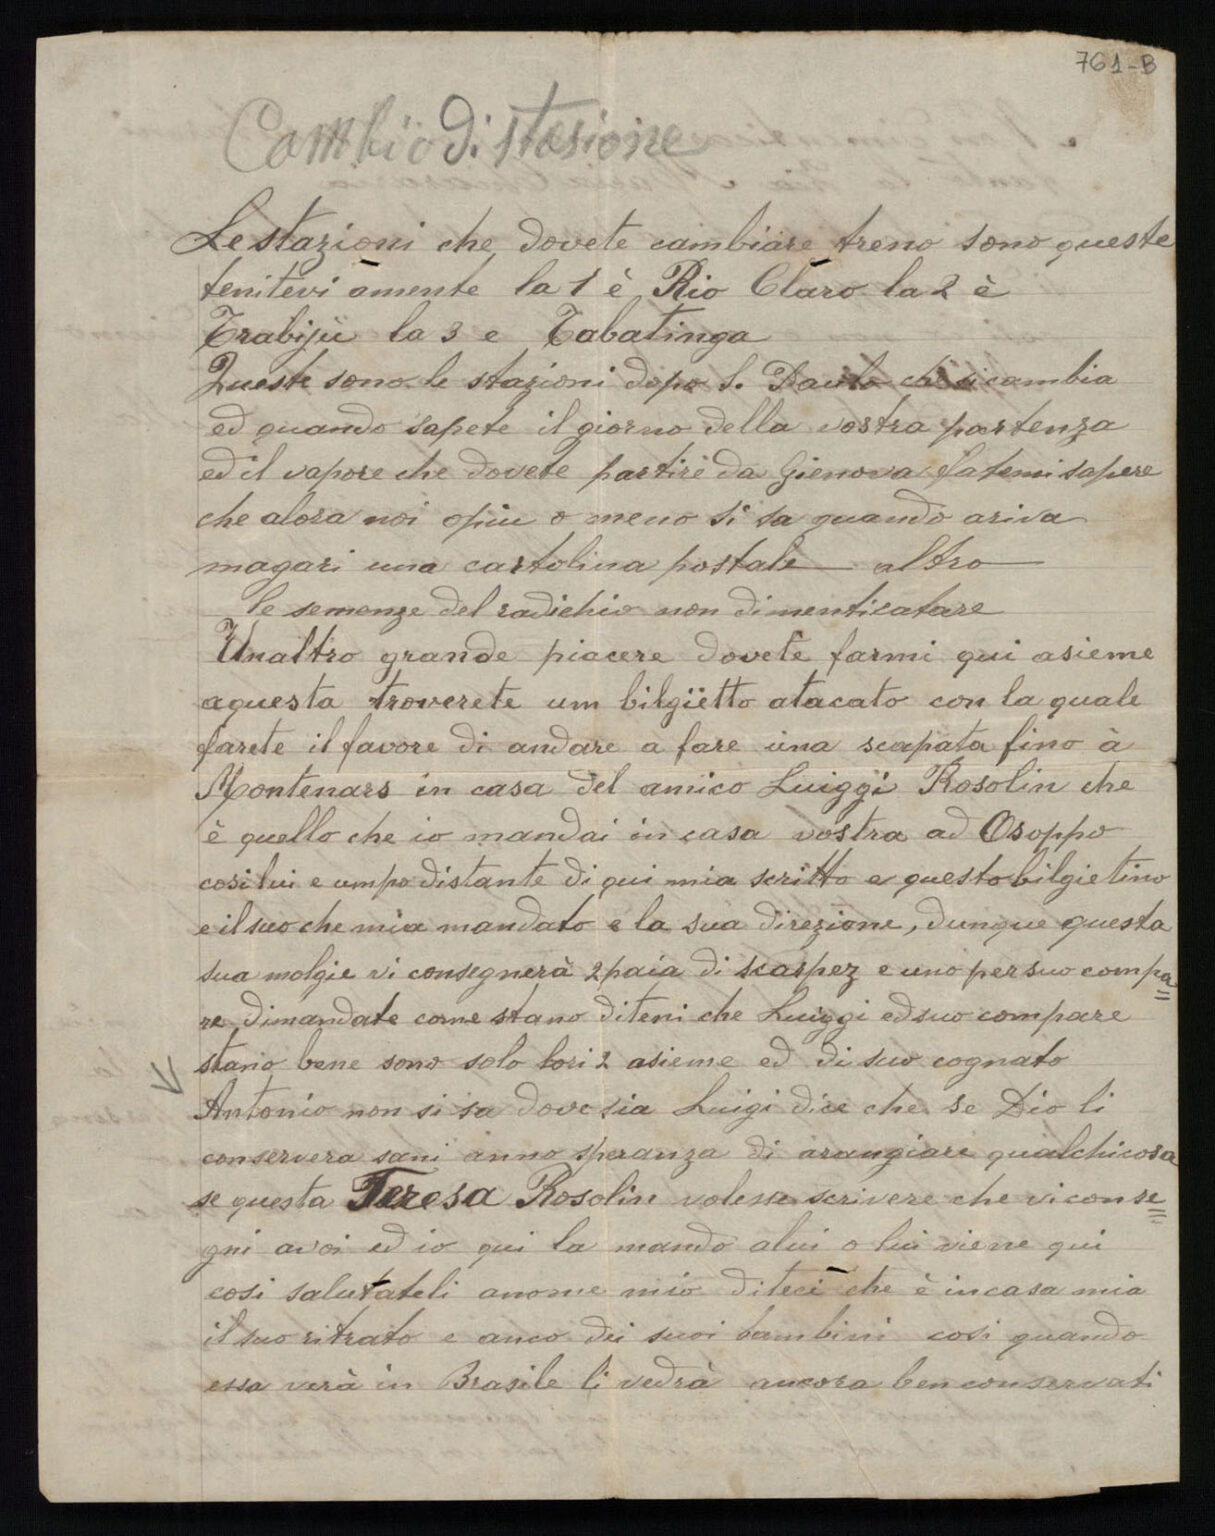 761-B
Cambio di stasione
Le stazioni che dovete cambiare treno sono queste
tenitevi amente la 1 è Rio Claro la 2 è
Trabijù la 3 e Tabatinga
Queste sono le stazioni dopo S. Paulo che si cambia
ed quando sapete il giorno della vostra partenza
ed il vapore che dovete partire da Gienova fatemi sapere
che alora noi opiu o meno si sa quando ariva
magari una cartolina postale altro
le semenze del radichio non dimenticatare
Unaltro grande piacere dovete farmi qui asieme
aquesta troverete um bilgietto atacato con la quale
farete il favore di andare a fare una scapata fino à
Montenars in casa del amico Luiggi Rosolin che
è quello che io mandai in casa vostra ad Osoppo
cosi lui e umpo distante di qui mia scritto e questo bilgietino
e il suo che mia mandato e la sua direzione, dunque questa
sua molgie vi consegnerà 2 paia di scarpez e uno per suo compa=
re, dimandate come stano diteni che Luiggi ed suo compare
stano bene sono solo lori 2 asieme ed di suo cognato
Antonio non si sa dove sia Luigi dice che se Dio li
conservera sani anno speranza di arangiare qualchicosa
se questa Teresa Rosolin volesse scrivere che vi conse=
gni avoi ed io qui la mando alui o lui viene qui
cosi salutateli anome mio diteci che è in casa mia
il suo ritrato e anco dei suoi bambini cosi quando
essa verà in Brasile li vedrà ancora ben conservati